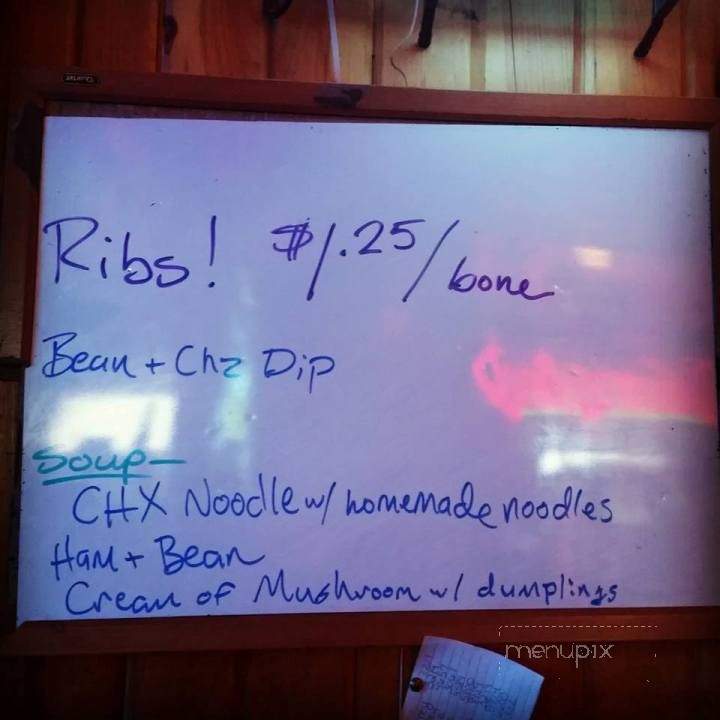 Ribs! $1.25/bone
Bean + Chz Dip
Soup—
CHX Noodle w/ homemade noodles
Ham + Bean
Cream of Mushroom w/ dumplings
menupix